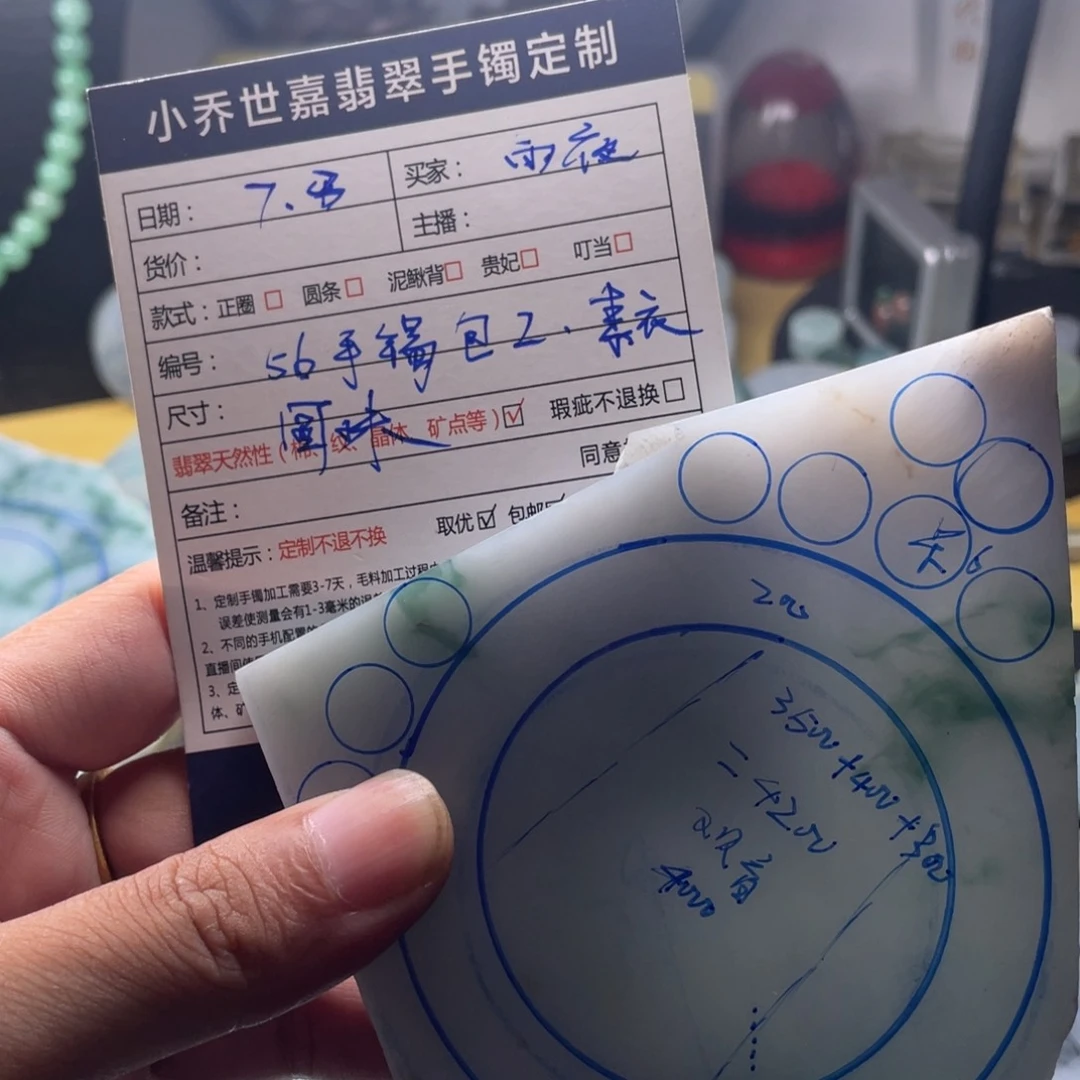 小乔世嘉翡翠手镯定制
日期： 买家：雨夜
货价： 主播：
款式：正圈 圆条 泥鳅背 贵妃 叮当
编号：56手镯包2、素衣
尺寸：圆珠
翡翠天然性（棉、纹、晶体、矿点等） 瑕疵不退换
同意
备注：
取优 包邮
温馨提示：定制不退不换
1、定制手镯加工需要3-7天，毛料加工过程
误差使测量会有1-3毫米的误
2、不同的手机配置的
直播间
3、定
体、矿
200
3500+400+300
=4200
4000